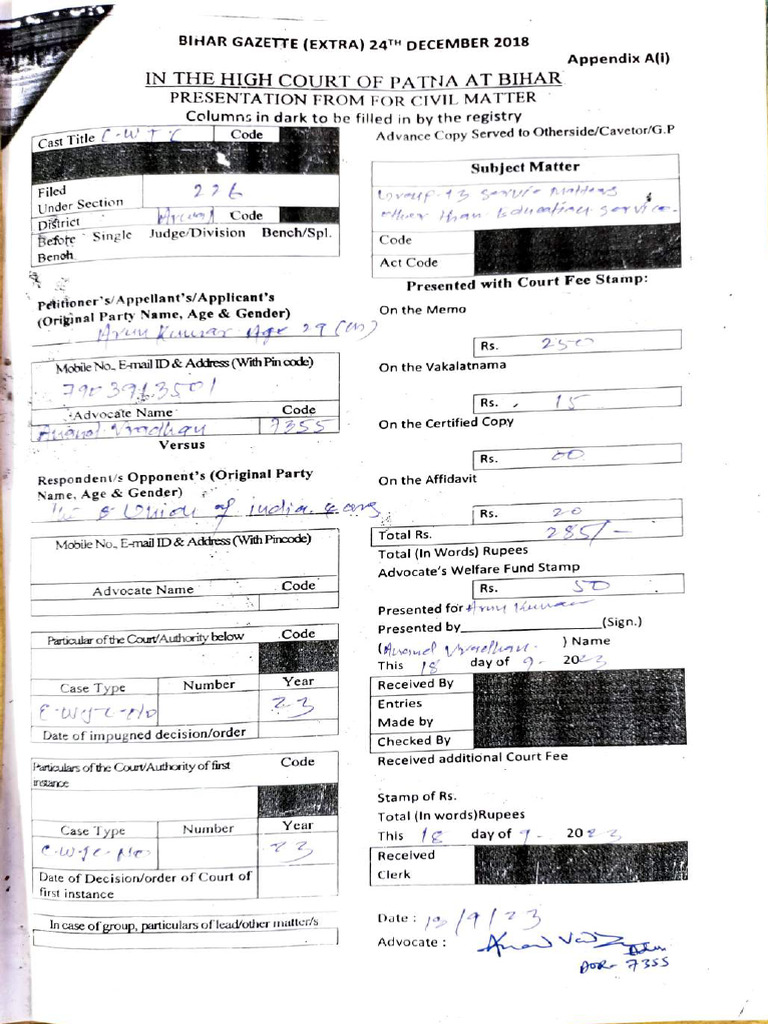 BIHAR GAZETTE (EXTRA) 24TH DECEMBER 2018
Appendix A(i)
IN THE HIGH COURT OF PATNA AT BIHAR
PRESENTATION FROM FOR CIVIL MATTER
Columns in dark to be filled in by the registry
Cast Title C-W-J-C Code
Filed
Under Section 226
District Arwal Code
Before Single Judge/Division Bench/Spl.
Bench
Petitioner's/Appellant's/Applicant's
(Original Party Name, Age & Gender)
Arun Kumar Age 29 (M)
Mobile No., E-mail ID & Address (With Pin code)
7903913501
Advocate Name Code
Anand Vardhan 7355
Versus
Respondent/s Opponent's (Original Party
Name, Age & Gender)
Union of India &
Mobile No., E-mail ID & Address (With Pincode)
Advocate Name Code
Particular of the Court/Authority below Code
Case Type Number Year
C-W-J-C-No 23
Date of impugned decision/order
Particulars of the Court/Authority of first Code
instance
Case Type Number Year
C-W-J-C-No 23
Date of Decision/order of Court of
first instance
In case of group, particulars of lead/other matter/s
Advance Copy Served to Otherside/Cavetor/G.P
Subject Matter
Group-13 Service Matters
other than Education Service.
Code
Act Code
Presented with Court Fee Stamp:
On the Memo
Rs. 250
On the Vakalatnama
Rs. 15
On the Certified Copy
Rs. 00
On the Affidavit
Rs. 20
Total Rs. 285/-
Total (In Words) Rupees
Advocate's Welfare Fund Stamp
Rs. 50
Presented for Arun Kumar
Presented by (Sign.)
(Anand Vardhan ) Name
This 18 day of 9- 2023
Received By
Entries
Made by
Checked By
Received additional Court Fee
Stamp of Rs.
Total (In words)Rupees
This 18 day of 9- 2023
Received
Clerk
Date : 18/9/23
Advocate :
AOR- 7355